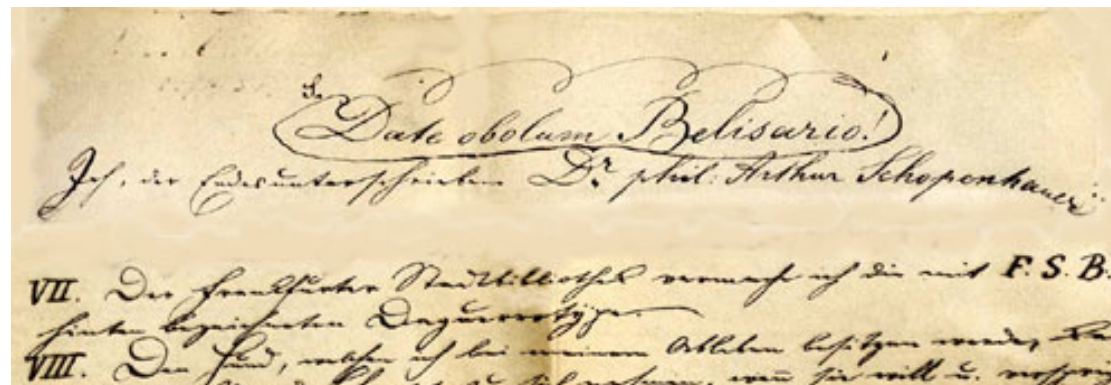 Date obolum Belisario!
Ich, der Endesunterschriebene Dr phil: Arthur Schopenhauer
VII. Der Frankfurter Stadtbibliothek vermache ich die mit F. S. B.
hinten bezeichneten Daguerrotype.
VIII. Den Hund, welchen ich bei meinem Ableben besitzen werde,
zu sich nehmen, wenn sie will u.